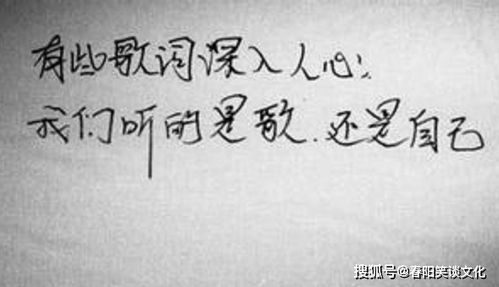 有些歌词深入人心;
我们听的是歌.还是自己
搜狐号@春阳笑谈文化